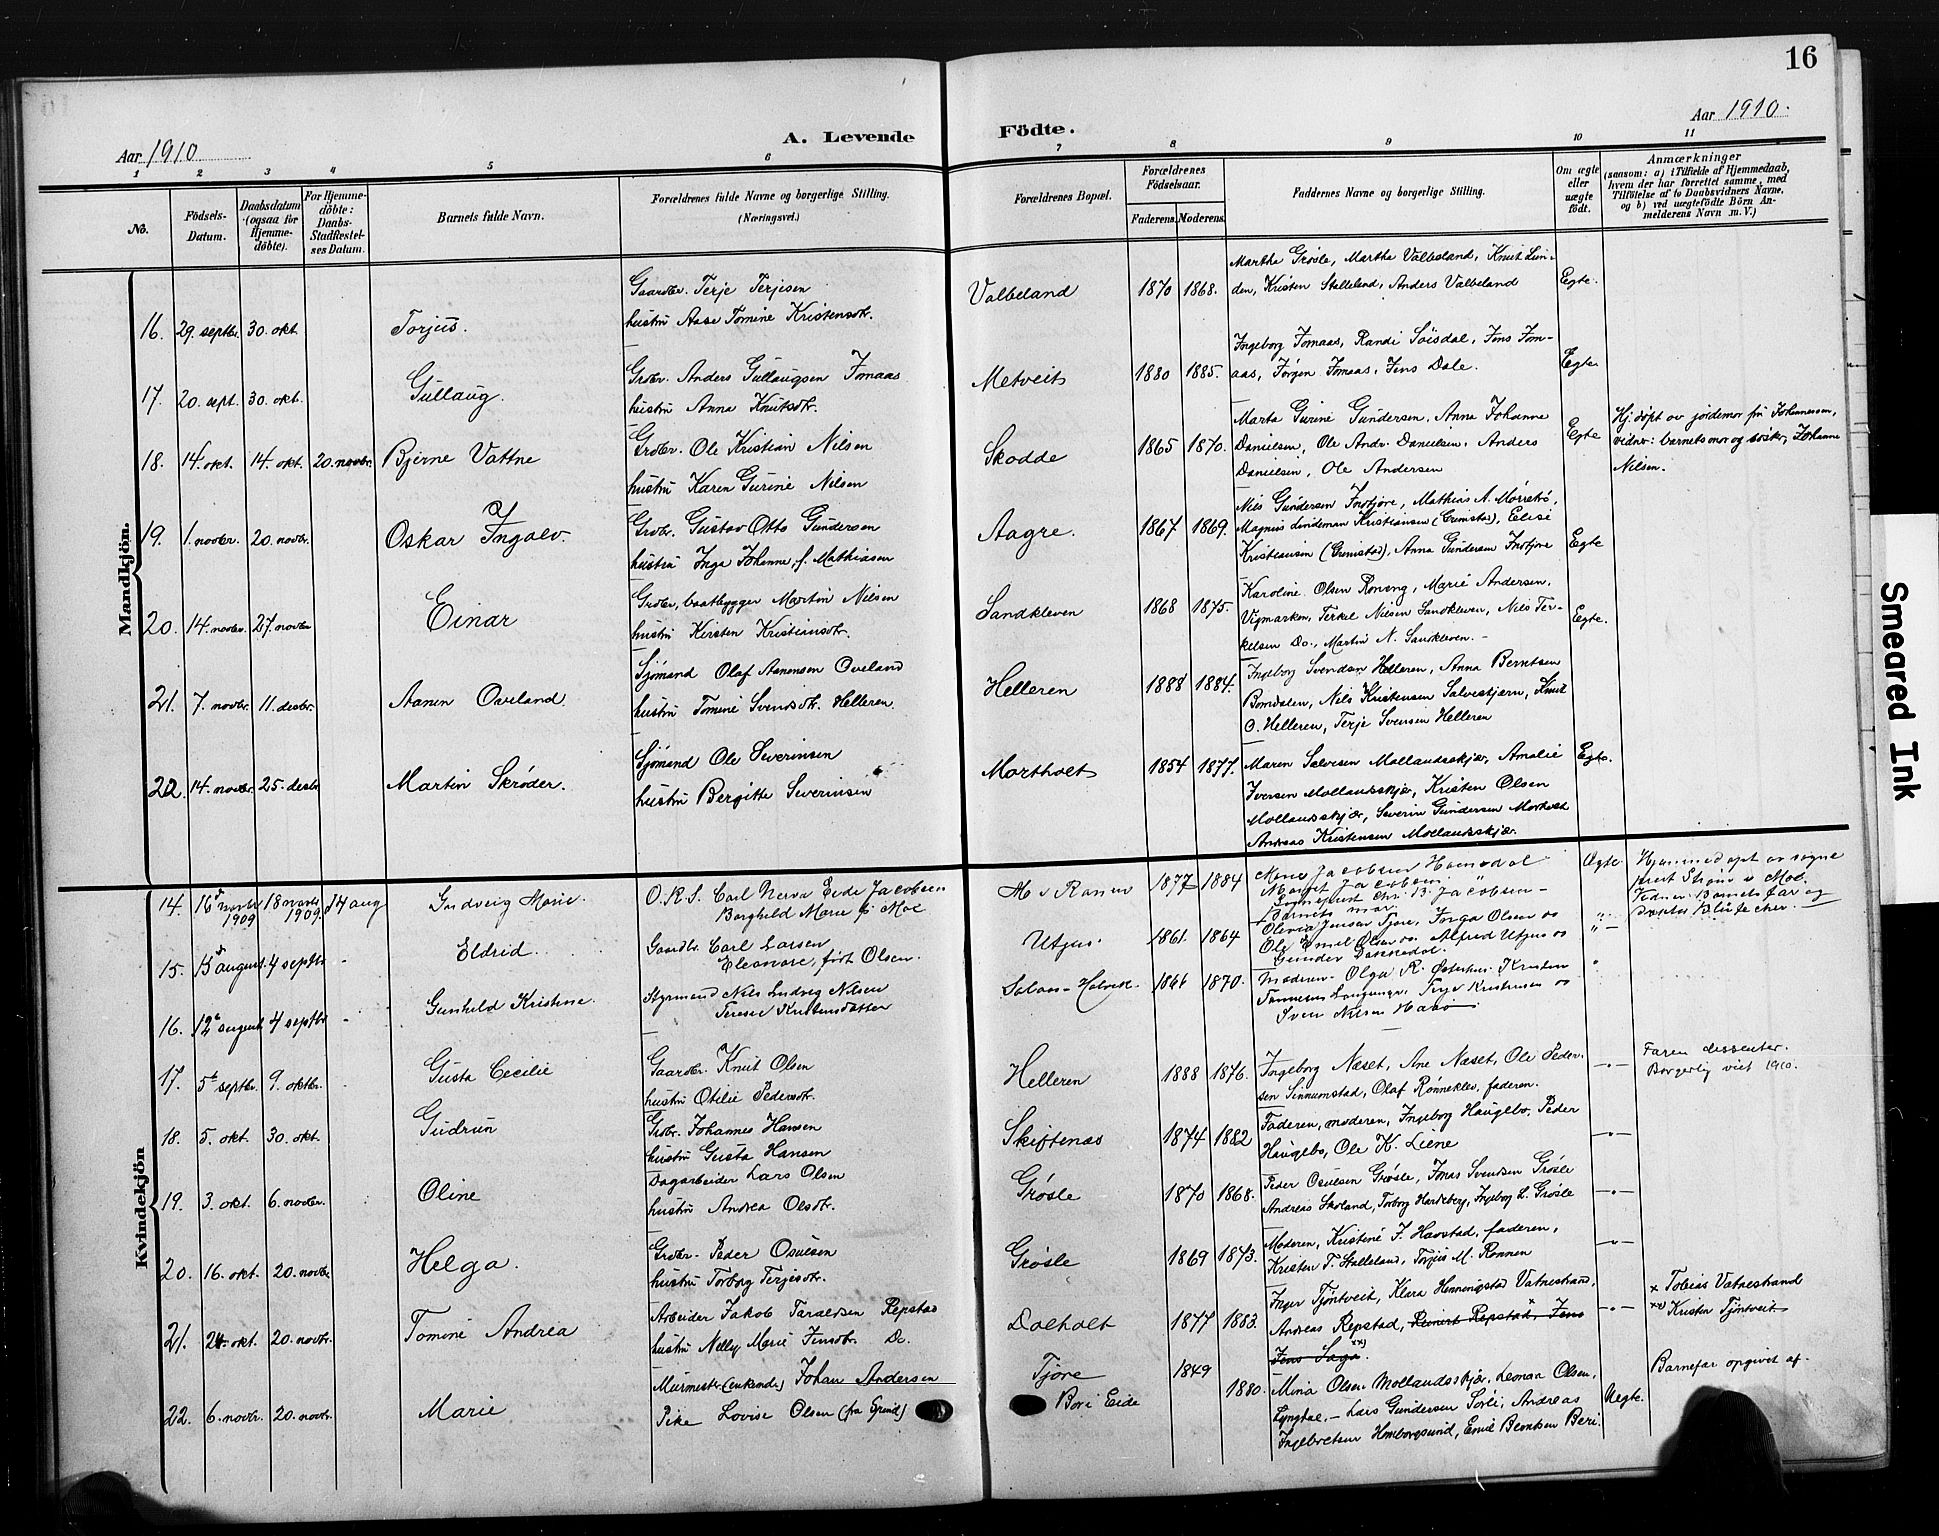 16
Aar 1910
A. Levende
Födte.
Aar 1910.
1 2 3 4 5 6 7 8 9 10 11
No.
Födsels-Datum.
Daabsdatum (ogsaa for Hjemme-döbte).
For Hjemme-döbte: Daabs-Stadfæstel-ses Datum.
Barnets fulde Navn.
Forældrenes fulde Navne og borgerlige Stilling.
(Næringsvei.)
Forældrenes Bopæl.
Forældrenes Födselsaar.
Faderens. Moderens.
Faddernes Navne og borgerlige Stilling.
Om ægte eller uægte födt.
Anmærkninger
(saasom: a) i Tilfælde af Hjemmedaab,
hvem der har forrettet samme, med
Tilföielse af to Daabsvidners Navne,
og b) ved uægtefödte Börn An-
melderens Navn m. V.)
Mandkjön.
16. 29. septbr. 30. okt. Torjus.
Gaardbr. Terje Terjesen
hustru Aase Tomine Kristensdtr.
Valbeland 1870 1868.
Martha Grøsle, Martha Valbeland, Knut Lun-
den, Kristen Stalleland, Anders Valbeland
Egte.
17. 20. sept. 30. okt. Gullaug.
Grdbr. Anders Gullaugsen Jomaas
hustru Anna Knutsdtr.
Metveit 1880 1885.
Ingeborg Jomaas, Randi Soisdal, Jens Jom-
aas, Jørgen Jomaas, Jens Dale.
Egte
18. 14. okt. 14. okt. 20. novbr. Bjerne Vattne
Grdbr. Ole Kristian Nilsen
hustru Karen Gurine Nilsen
Skodde 1865 1870.
Marta Gurine Gundersen, Anna Johanne
Danielsen, Ole Andr. Danielsen, Anders
Danielsen, Ole Andersen
Egte
Hj. døpt av jordemor fru Johannessen,
vidner: barnets mor og søster, Johanne
Nilsen.
19. 1. novbr. 20. novbr. Oskar Yngalv.
Grdbr. Gustav Otto Gundersen
hustru Inga Johanne, f. Mathiasen
Aagre. 1867 1869.
Nils Gundersen Inntjøre, Mathias A. Morvetrø,
Magnus Lindeman Kristiansen (Grimstad), Elise
Kristiansen (Grimstad), Anna Gundersen Inntjøre
Egte
20. 14. novbr. 27. novbr Einar
Grdbr, baatbygger Martin Nilsen
hustru Kirsten Kristiansdtr.
Sandkleven 1868 1875.
Karoline Olsen Roneng, Marie Andersen,
Vigmarken, Terkel Nilsen Sandkleven, Nils Ter-
kelsen Do., Martin N. Sandkleven. -
Egte.
21. 7. novbr. 11. desbr. Aanen Oveland
Sjømand Olaf Aanensen Oveland
hustru Tomine Svendsdtr. Helleren.
Helleren 1888 1884.
Ingeborg Svendsen Helleren, Anna Berntsen
Bomdalen, Nils Kristensen Salvestjern, Knut
O. Helleren, Terje Svensen Helleren
22. 14. novbr. 25. desbr. Martin Skrøder.
Sjømand Ole Severinsen
hustru Bergitte Severinsen
Mortholt 1854 1877.
Maren Salvesen Mollandsskjær, Amalie
Iversen Mollandsskjær, Kristen Olsen
Mollandsskjær, Severin Gundersen Mortholt
Andreas Kristensen Mollandsskjær.
Egte.
Kvindekjön
14. 16d novbr 1909 18 novbr 1909. 14 aug Ludveig Marie.
O.R.S. Carl Nerva Eide Jacobsen
Borghild Marie f. Moe
1877 1884
Marie Jacobsen
Margit Jacobsen
Chr. B. Jacobsen -
Barnets mor.
Ægte
Hjemmedøpt av sogne
prest Strøm
Vidner: Barnets far og
15. 15d august. 4 septbr - Eldrid.
Gaardbr. Carl Larsen
Eleonore, født Olsen.
Utjus. 1861. 1864
Olivia Jensen Tjore, Inga Olsen og
Ole Emil Olsen og Alfred Utjus og
Gunder
" -
16. 12d august 4 septbr - Gunhild Kristine.
Styrmand Nils Ludvig Nilsen
Terese Kristensdatter
1866 1870.
Moderen - Olga R. Østerhus. Kristen
Terje Kristensen og
Sven Nilsen
"
17. 5t septbr. 9. oktbr. Gusta Cecilie
Gaardbr. Knut Olsen
hustru Otilie Pedersdtr.
Helleren 1888 1876.
Ingeborg Næset, Ane Næset, Ole Peder-
sen Sinnumstad, Olaf Rønneklev, faderen.
-"-
Faren dissenter.
Borgerlig viet 1910.
18. 5. okt. 30. okt. Gudrun
Grdbr. Johannes Hansen
hustru Gusta Hansen
Skiftenæs 1874 1882
Faderen, moderen, Ingeborg Haugebo, Peder
Haugebo, Ole K. Liene
-"-
19. 3. okt. 6. novbr. Oline
Dagarbeider Lars Olsen
hustru Andrea Olsdtr.
Grøsle 1870 1868.
Peder Osulsen Grøsle, Jonas Svendsen Grøsle
Andreas Skoland, Torborg Hardeberg, Ingeborg L. Grøsle
-"-
20. 16. okt. 20. novbr. Helga.
Grdbr. Peder Osulsen
hustru Torborg Terjesdtr.
Grøsle 1869 1873.
Moderen, Kristine J. Havstad, faderen,
Kristen T. Stalleland, Torjus M. Ronnen
-"-
21. 24. okt. 20. novbr. Tomine Andrea
Arbeider Jakob Taraldsen Repstad
hustru Nelly Marie Jensdtr. Do.
Dalholt 1877 1883.
Inger Tjøntveit, Klara Henningstad Vatnestrand,
Andreas Repstad, Reinert Repstad, x Jens
Jens Saga xx).
-"-
x Tobias Vatnestrand
xx) Kristen Tjöntveit
22. 6. novbr. 20. novbr. Marie
Murmester (enkemd.) Johan Andersen
Pike Lovise Olsen (fra Grund)
Tjore
Bori Eide
1849
1880.
Mina Olsen Mollandsskjær, Leonora Olsen,
Lyngdal. - Lars Gundersen Sorli, Andreas
Ingebretsen Homborgsund, Emil Berntsen Beri.
Uegte.
Barnefar opgivet af-
Smeared Ink